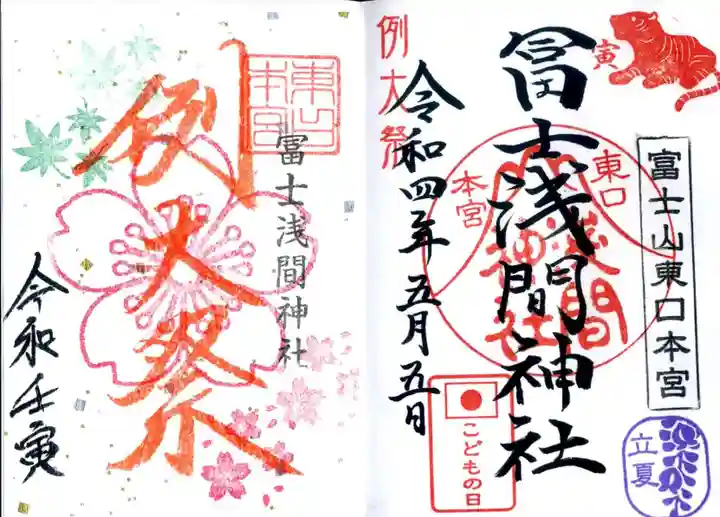 寅
富士山東口本宮
立夏
冨士浅間神社
東口
本宮
浅間
神社
例大祭
令和四年五月五日
こどもの日
東口
本宮
冨士浅間神社
例大祭
令和壬寅